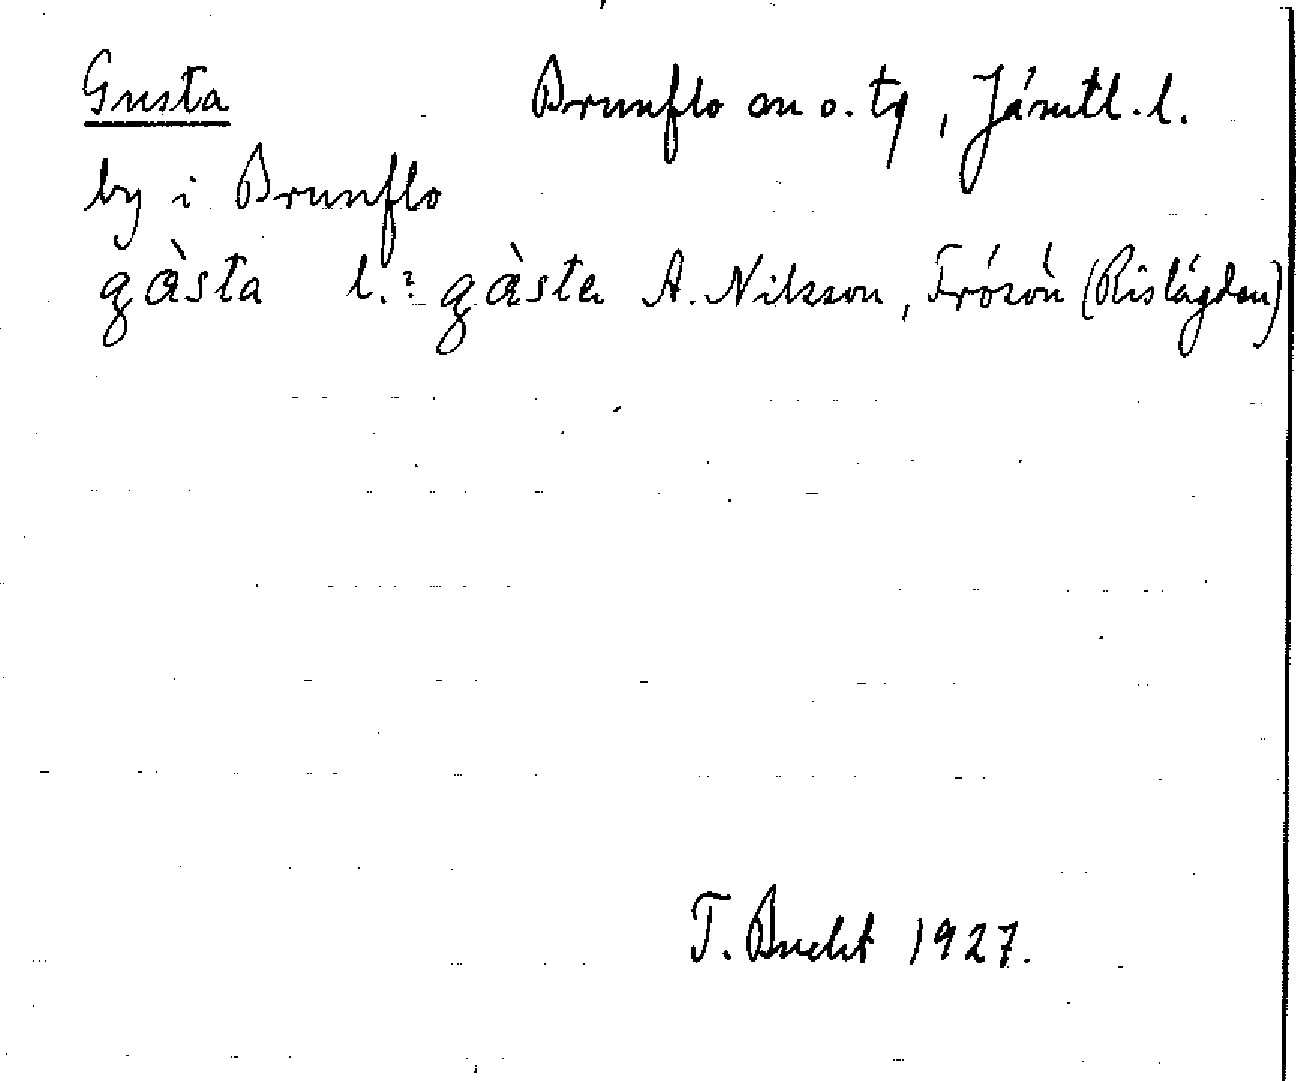 Gusta Brunflo sn o. tg, Jämtl. l.
by i Brunflo
gàsta l.? gàsta A. Nilsson, Frösön (Rislägden)
T. Bucht 1927.